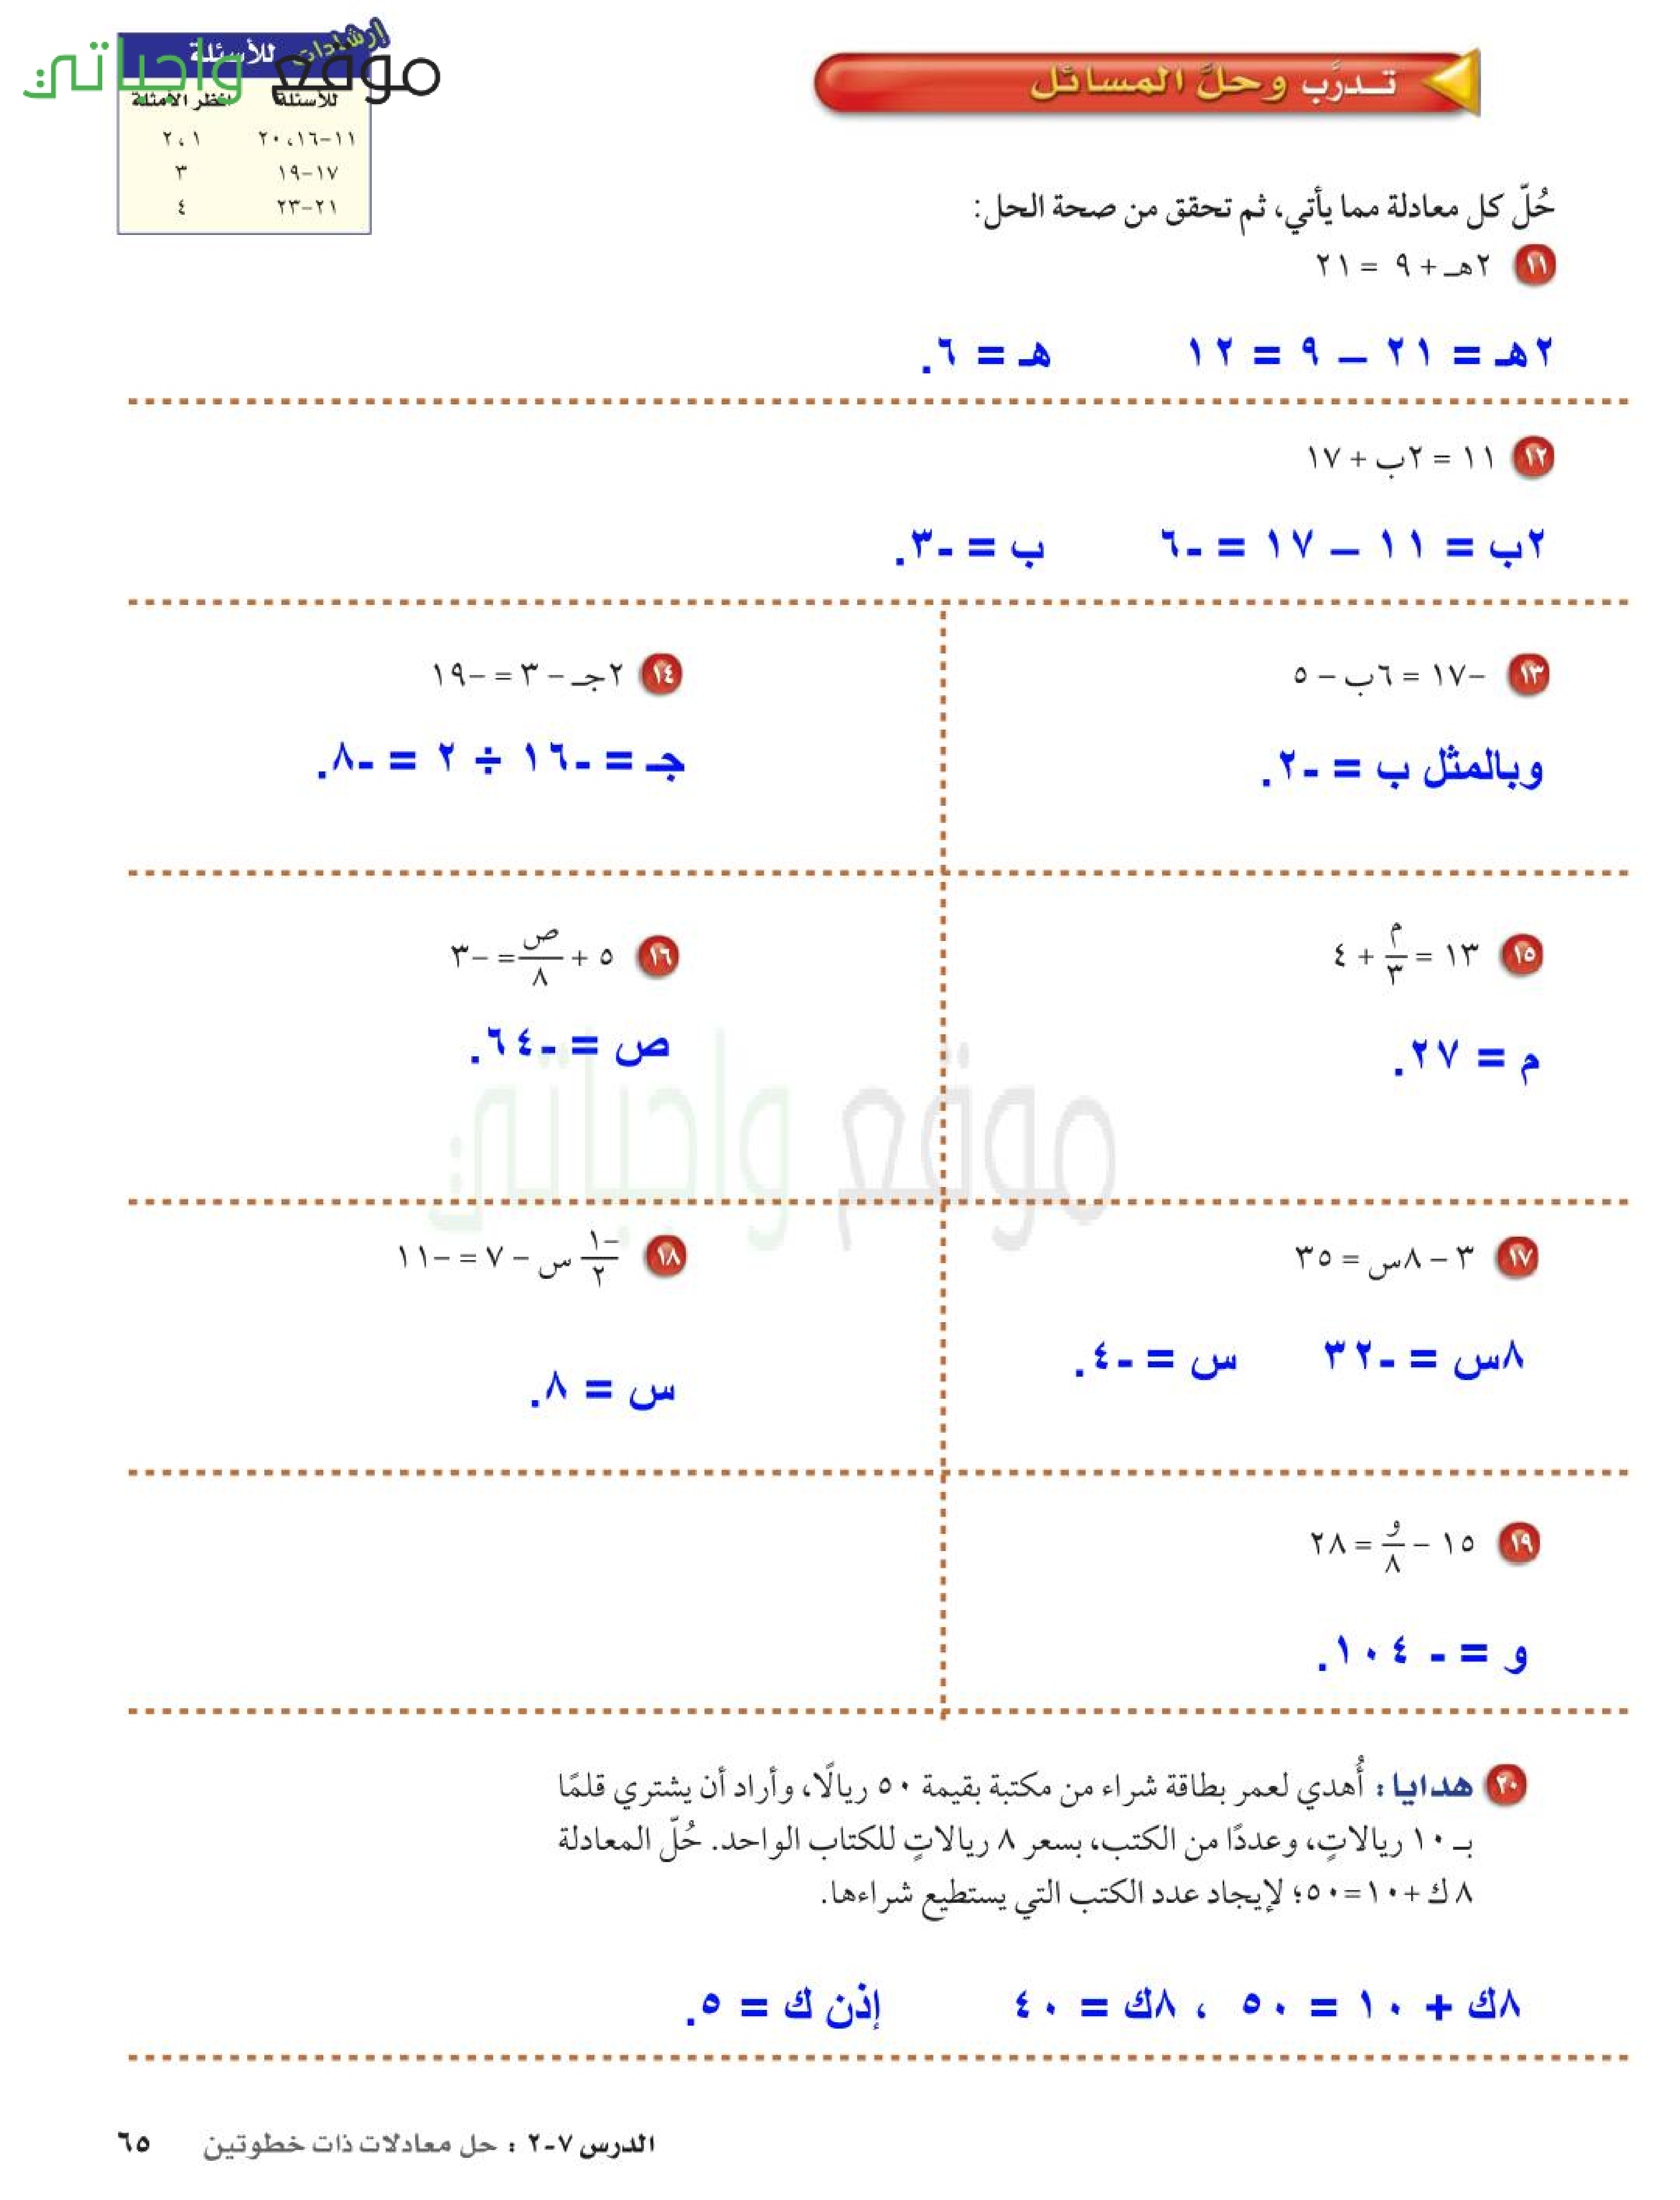 موقع واجباتي
إرشادات للأسئلة
للأسئلة انظر الأمثلة
١١-١٦، ٢٠ ١، ٢
١٧-١٩ ٣
٢١-٢٣ ٤
تدرَّب وحلَّ المسائل
حُلّ كل معادلة مما يأتي، ثم تحقق من صحة الحل:
١١ ٢هـ + ٩ = ٢١
٢هـ = ٢١ – ٩ = ١٢ هـ = ٦.
١٢ ١١ = ٢ب + ١٧
٢ب = ١١ – ١٧ = -٦ ب = -٣.
١٣ -١٧ = ٦ب - ٥
وبالمثل ب = -٢.
١٤ ٢جـ - ٣ = -١٩
جـ = -١٦ ÷ ٢ = -٨.
١٥ ١٣ = م/٣ + ٤
م = ٢٧.
١٦ ٥ + ص/٨ = -٣
ص = -٦٤.
موقع واجباتي
١٧ ٣ - ٨س = ٣٥
٨س = -٣٢ س = -٤.
١٨ -١/٢ س - ٧ = -١١
س = ٨.
١٩ ١٥ - و/٨ = ٢٨
و = - ١٠٤.
٢٠ هدايا: أُهدي لعمر بطاقة شراء من مكتبة بقيمة ٥٠ ريالًا، وأراد أن يشتري قلمًا
بـ ١٠ ريالاتٍ، وعددًا من الكتب، بسعر ٨ ريالاتٍ للكتاب الواحد. حُلّ المعادلة
٨ ك + ١٠ = ٥٠؛ لإيجاد عدد الكتب التي يستطيع شراءها.
٨ك + ١٠ = ٥٠ ، ٨ك = ٤٠ إذن ك = ٥.
الدرس ٧-٢ : حل معادلات ذات خطوتين ٦٥